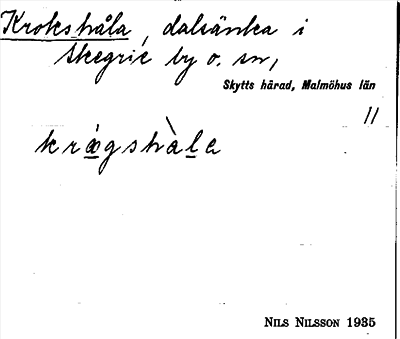 Krokshåla, dalsänka i
Skegrie by o. sn,
Skytts härad, Malmöhus län
11
krǽgshàla
NILS NILSSON 1935